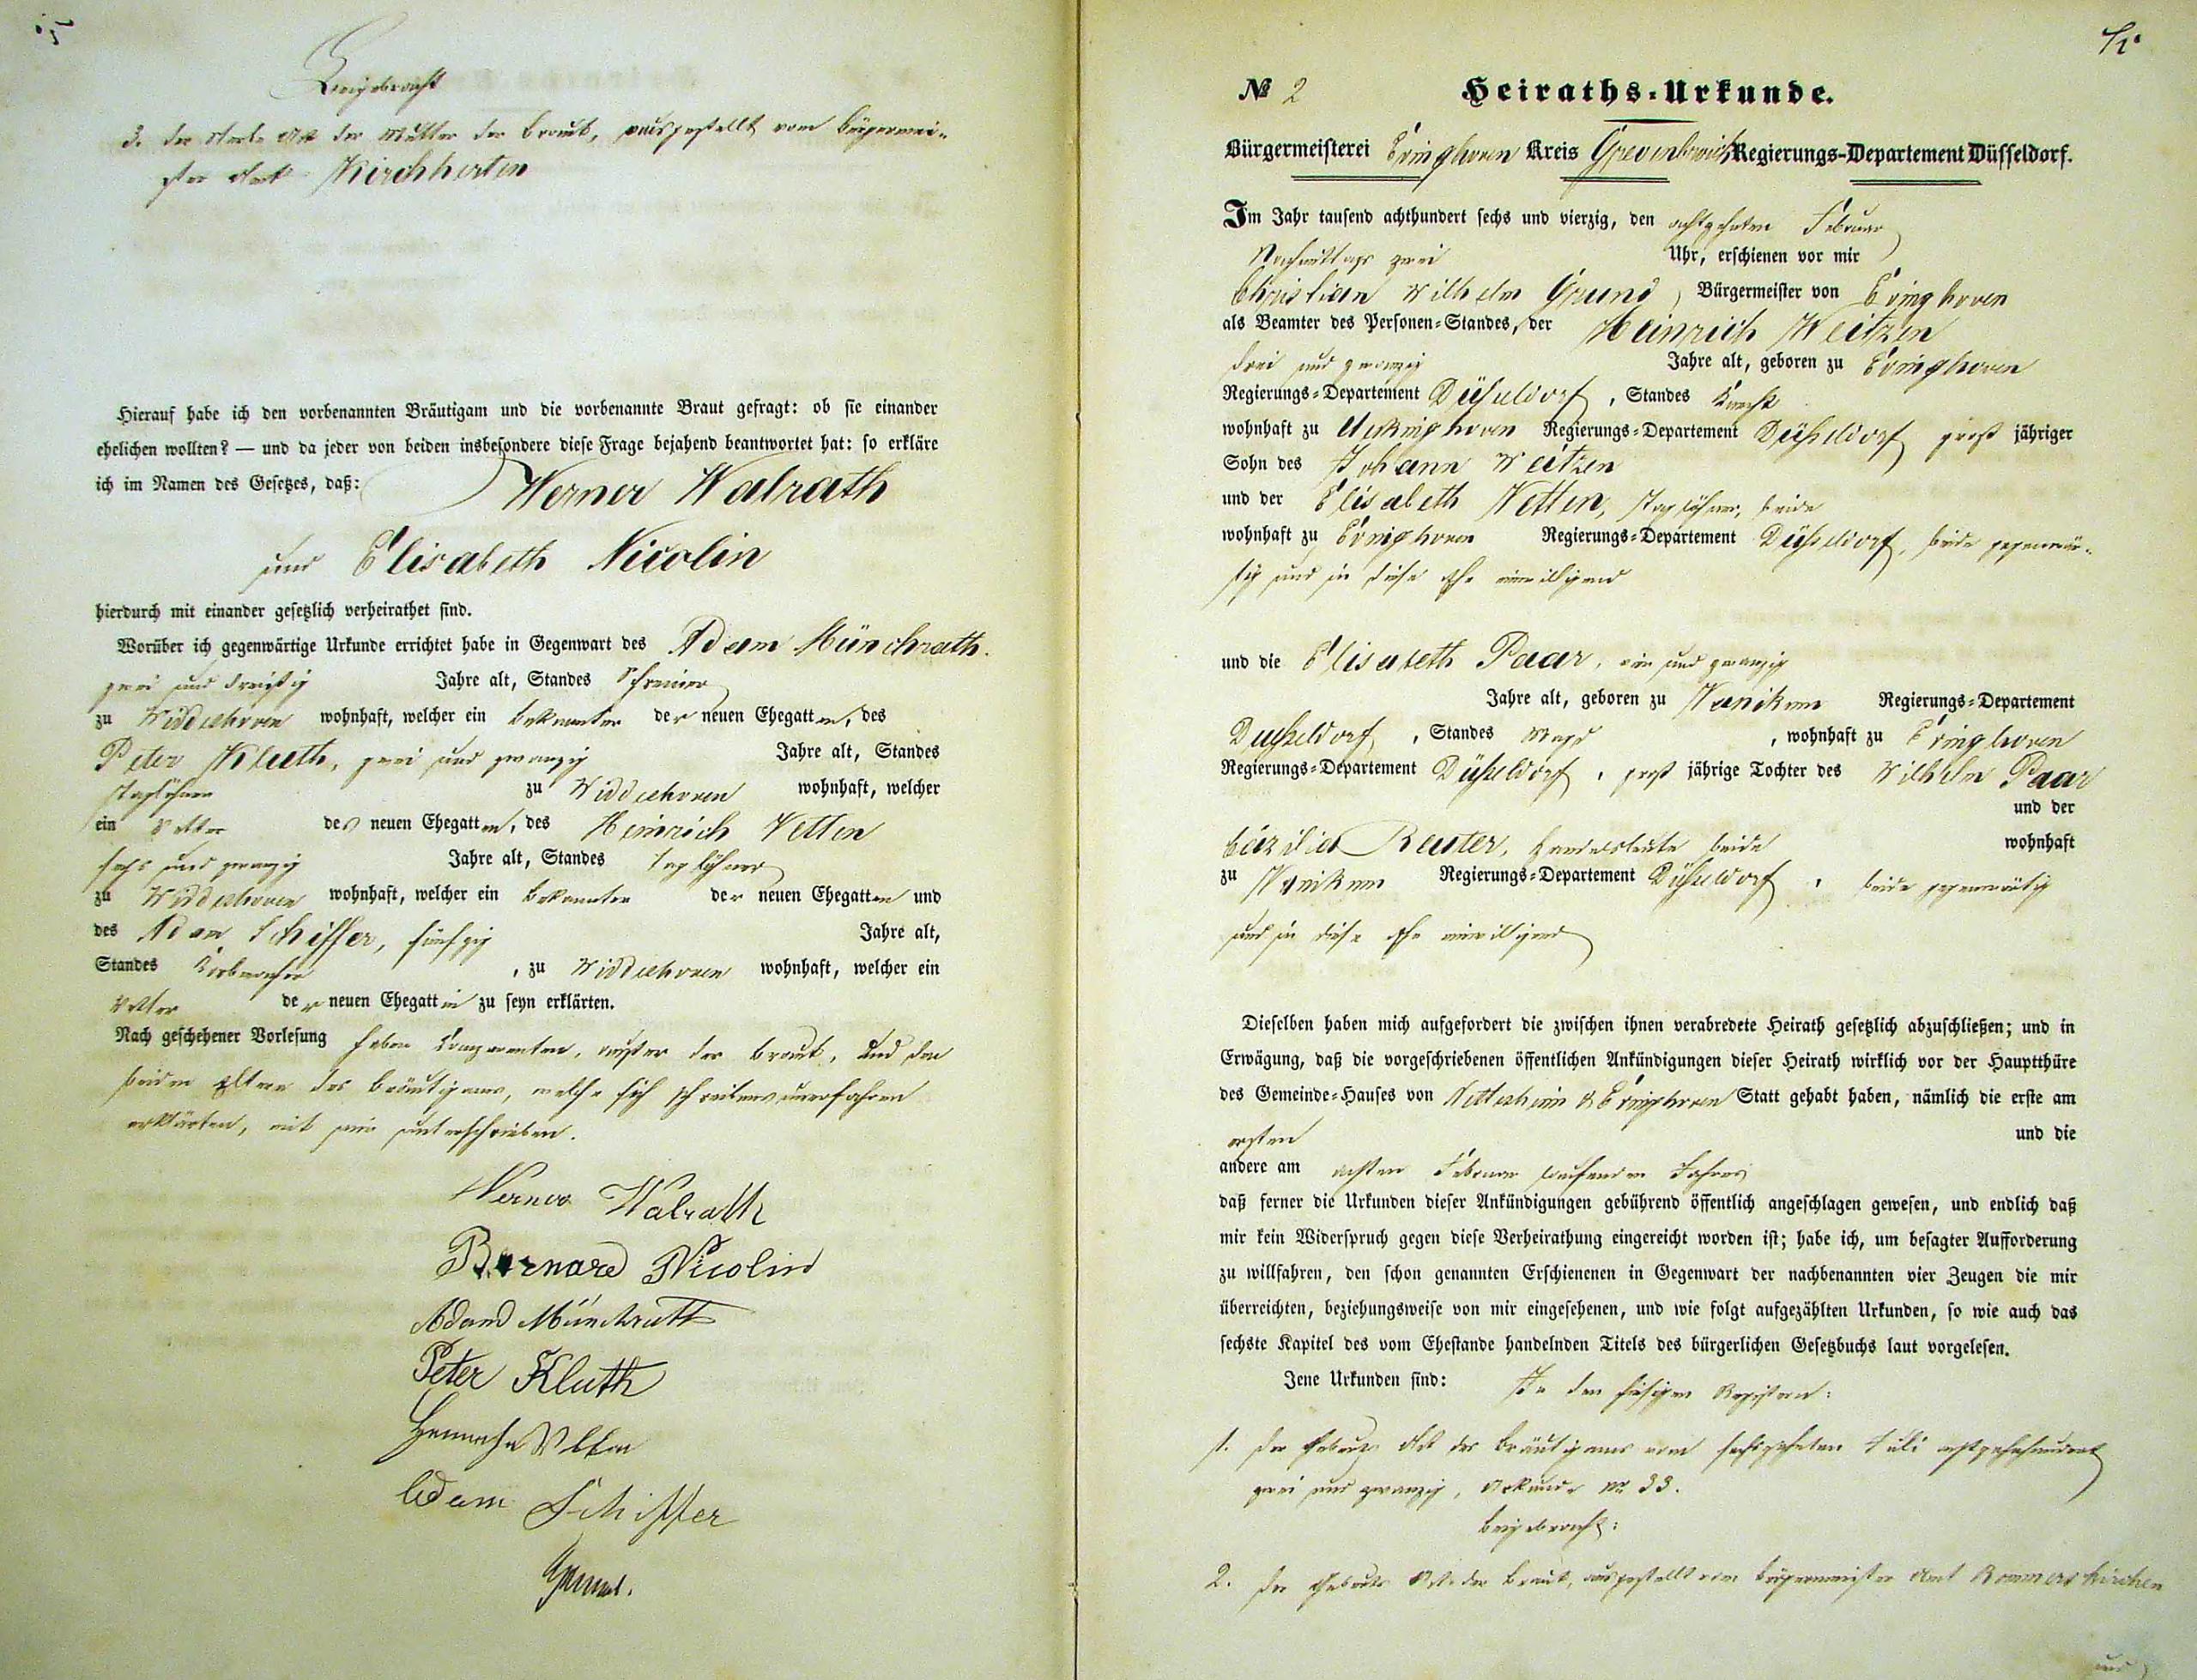 Beigebracht
3. der Sterbe Akt der Mutter der Braut, ausgestellt vom Bürgermei-
ster Amt Kirchherten
Hierauf habe ich den vorbenannten Bräutigam und die vorbenannte Braut gefragt: ob sie einander
ehelichen wollten? — und da jeder von beiden insbesondere diese Frage bejahend beantwortet hat: so erkläre
ich im Namen des Gesetzes, daß: Werner Walrath
und Elisabeth Nicolin
hierdurch mit einander gesetzlich verheirathet sind.
Worüber ich gegenwärtige Urkunde errichtet habe in Gegenwart des Adam Münchrath.
zwei und dreißig Jahre alt, Standes Schreiner
zu Widdeshoven wohnhaft, welcher ein Bekannter der neuen Ehegatten, des
Peter Kluth, zwei und zwanzig Jahre alt, Standes
Taglöhner zu Widdeshoven wohnhaft, welcher
ein Vetter des neuen Ehegatten, des Heinrich Velten
sechs und zwanzig Jahre alt, Standes Taglöhner
zu Widdeshoven wohnhaft, welcher ein Bekannter der neuen Ehegatten und
des Adam Schiffer, fünfzig Jahre alt,
Standes Korbmacher, zu Widdeshoven wohnhaft, welcher ein
Vetter der neuen Ehegattin zu seyn erklärten.
Nach geschehener Vorlesung haben Comparenten, außer der Braut, und den
beiden Eltern des Bräutigams, welche sich schreibensunerfahren
erklärten, mit mir unterschrieben.
Werner Walrath
Bernard Nicolin
Adam Münchrath
Peter Kluth
Heinrich Velten
Adam Schiffer
Grund.
№ 2 Heiraths-Urkunde.
Bürgermeisterei Evinghoven Kreis Grevenbroich Regierungs-Departement Düsseldorf.
Im Jahr tausend achthundert sechs und vierzig, den achtzehnten Februar
Nachmittags zwei Uhr, erschienen vor mir
Christian Wilhelm Grund, Bürgermeister von Evinghoven
als Beamter des Personen-Standes, der Heinrich Weitzen
drei und zwanzig Jahre alt, geboren zu Evinghoven
Regierungs-Departement Düsseldorf, Standes Knecht
wohnhaft zu Ueckinghoven Regierungs-Departement Düsseldorf groß jähriger
Sohn des Johann Weitzen
und der Elisabeth Vetten, Taglöhner, beide
wohnhaft zu Evinghoven Regierungs-Departement Düsseldorf, beide gegenwär-
tig und in diese Ehe einwilligend
und die Elisabeth Paar, ein und zwanzig
Jahre alt, geboren zu Vanikum Regierungs-Departement
Düsseldorf, Standes Magd, wohnhaft zu Evinghoven
Regierungs-Departement Düsseldorf, groß jährige Tochter des Wilhelm Paar
und der
Cäzilia Reuter, Handelsleute beide wohnhaft
zu Vanikum Regierungs-Departement Düsseldorf, beide gegenwärtig
und in diese Ehe einwilligend
Dieselben haben mich aufgefordert die zwischen ihnen verabredete Heirath gesetzlich abzuschließen; und in
Erwägung, daß die vorgeschriebenen öffentlichen Ankündigungen dieser Heirath wirklich vor der Hauptthüre
des Gemeinde-Hauses von Nettesheim & Evinghoven Statt gehabt haben, nämlich die erste am
ersten und die
andere am achten Februar laufenden Jahres
daß ferner die Urkunden dieser Ankündigungen gebührend öffentlich angeschlagen gewesen, und endlich daß
mir kein Widerspruch gegen diese Verheirathung eingereicht worden ist; habe ich, um besagter Aufforderung
zu willfahren, den schon genannten Erschienenen in Gegenwart der nachbenannten vier Zeugen die mir
überreichten, beziehungsweise von mir eingesehenen, und wie folgt aufgezählten Urkunden, so wie auch das
sechste Kapitel des vom Ehestande handelnden Titels des bürgerlichen Gesetzbuchs laut vorgelesen.
Jene Urkunden sind: In den hiesigen Registern:
1. der Geburts Akt des Bräutigams vom sechszehnten Juli achtzehnhundert
zwei und zwanzig, Urkunde № 33.
beigebracht:
2. der Geburts Akt der Braut, ausgestellt vom Bürgermeister Amt Rommerskirchen
und